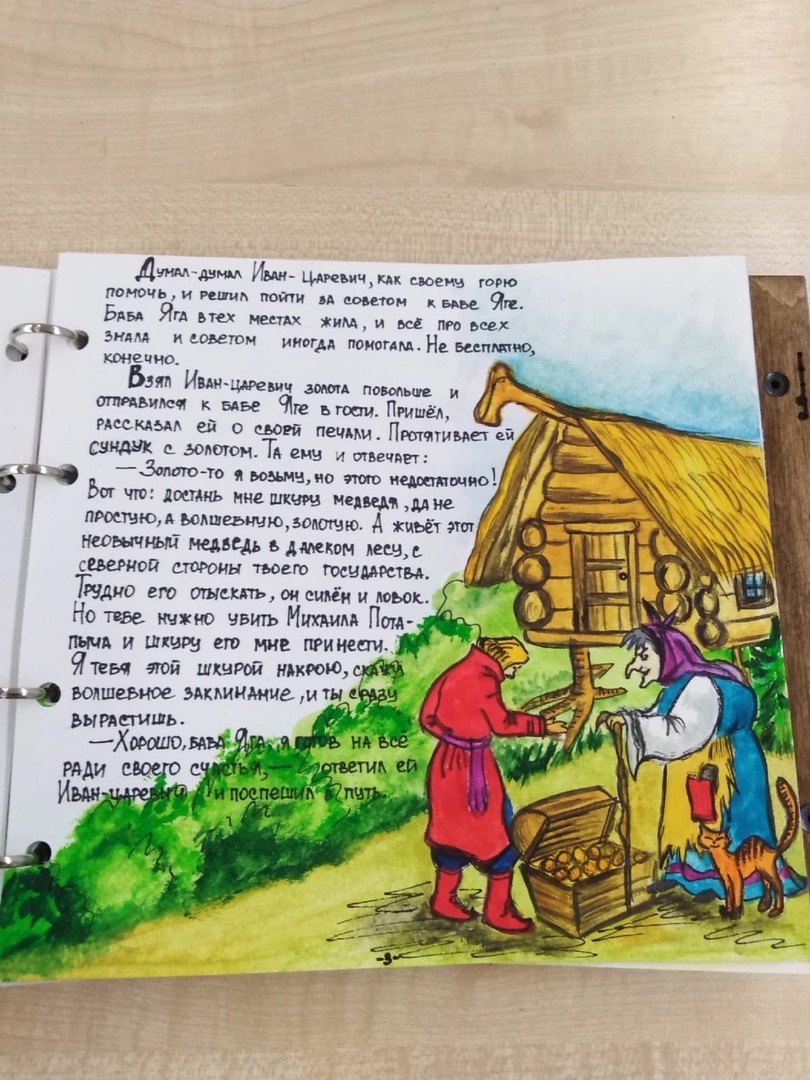 Думал-думал Иван-царевич, как своему горю
помочь, и решил пойти за советом к Бабе Яге.
Баба Яга в тех местах жила, и всё про всех
знала и советом иногда помогала. Не бесплатно,
конечно.
Взял Иван-царевич золота побольше и
отправился к Бабе Яге в гости. Пришёл,
рассказал ей о своей печали. Протягивает ей
сундук с золотом. Та ему и отвечает:
— Золото-то я возьму, но этого недостаточно!
Вот что: достань мне шкуру медведя, да не
простую, а волшебную, золотую. А живёт этот
необычный медведь в далеком лесу, с
северной стороны твоего государства.
Трудно его отыскать, он силён и ловок.
Но тебе нужно убить Михаила Пота-
пыча и шкуру его мне принести.
Я тебя этой шкурой накрою, скажу
волшебное заклинание, и ты сразу
вырастишь.
— Хорошо, Баба Яга, я готов на всё
ради своего счастья, — ответил ей
Иван-царевич и поспешил в путь.
-3-